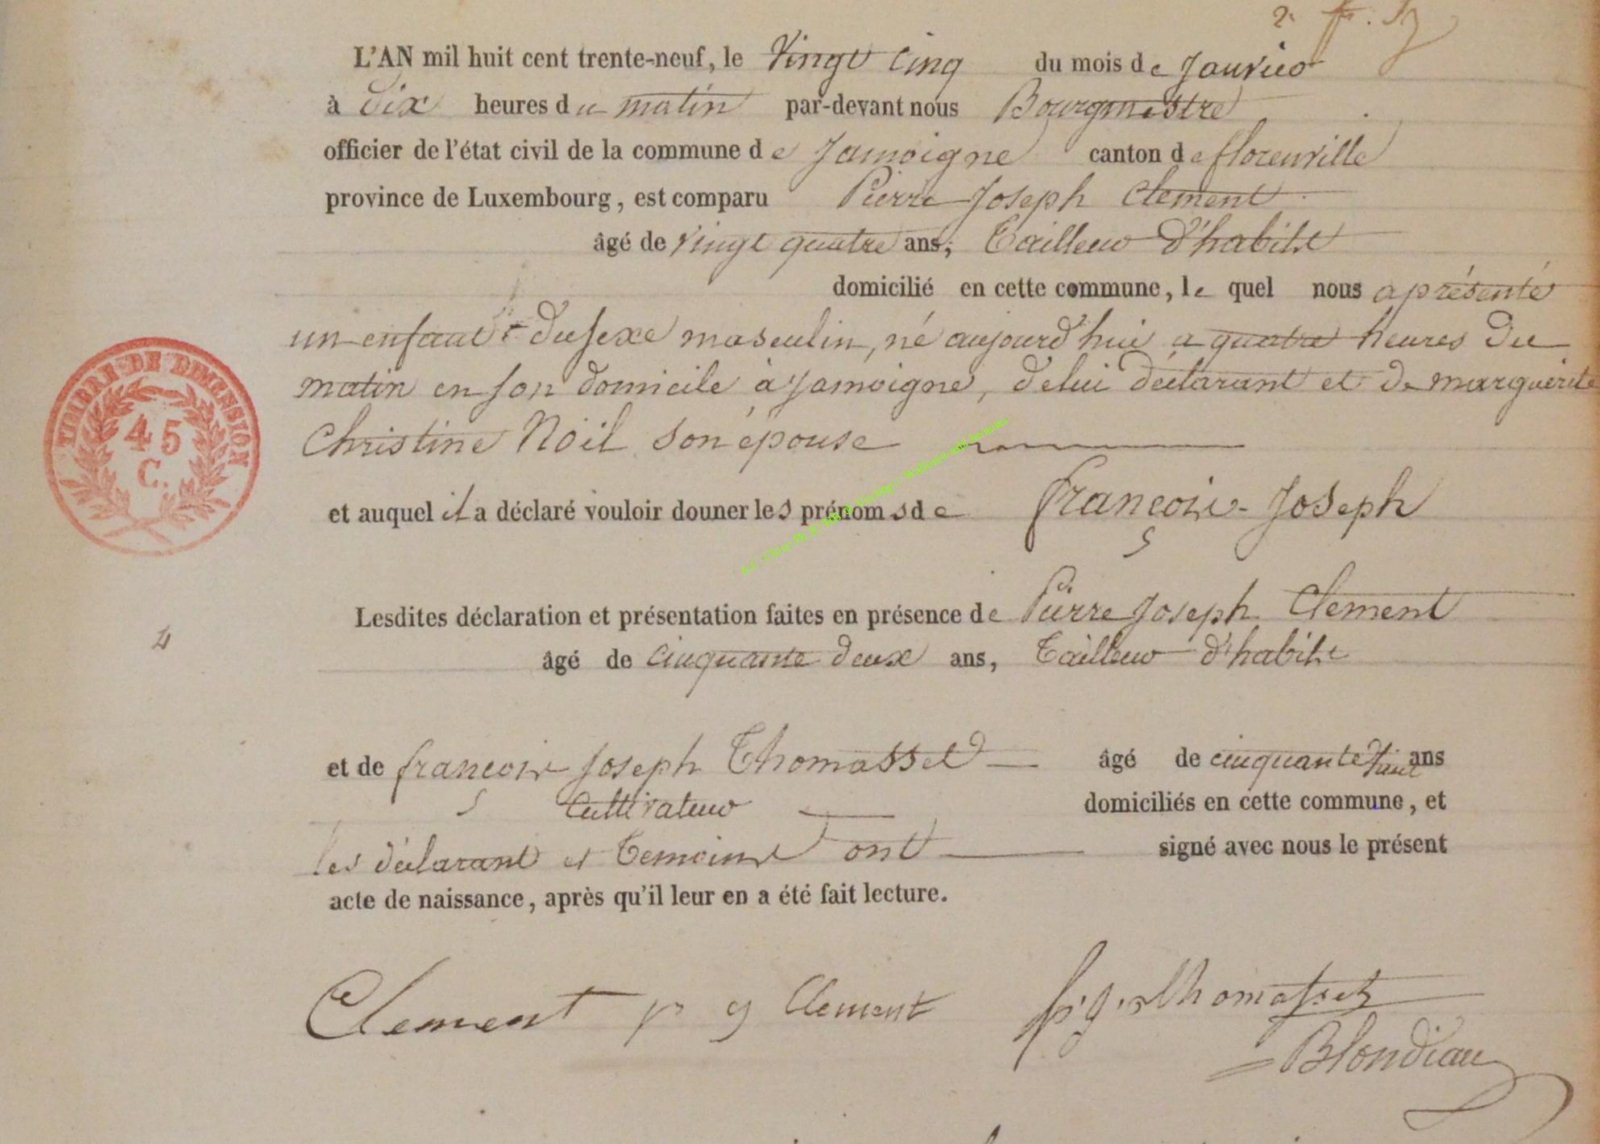 L'AN mil huit cent trente-neuf, le vingt cinq du mois de Janvier
à dix heures du matin par-devant nous Bourgmestre
officier de l'état civil de la commune de Jamoigne canton de florenville
province de Luxembourg, est comparu Pierre Joseph Clement
âgé de vingt quatre ans, Tailleur d'habits
domicilié en cette commune, le quel nous a présenté
un enfant du sexe masculin, né aujourd'hui a quatre heures du
matin en son domicile à Jamoigne, de lui déclarant et de marguerite
Christine Noïl son épouse
et auquel il a déclaré vouloir donner les prénoms de françois-Joseph
Lesdites déclaration et présentation faites en présence de Pierre Joseph Clement
âgé de cinquante deux ans, Tailleur d'habits
et de françois Joseph Thomasset âgé de cinquante huit ans
Cultivateur domiciliés en cette commune, et
les déclarant et Temoins ont signé avec nous le présent
acte de naissance, après qu'il leur en a été fait lecture.
Clement p j Clement f. j. Thomasset
Blondiau
TIMBRE DE DIMENSION
45
C.